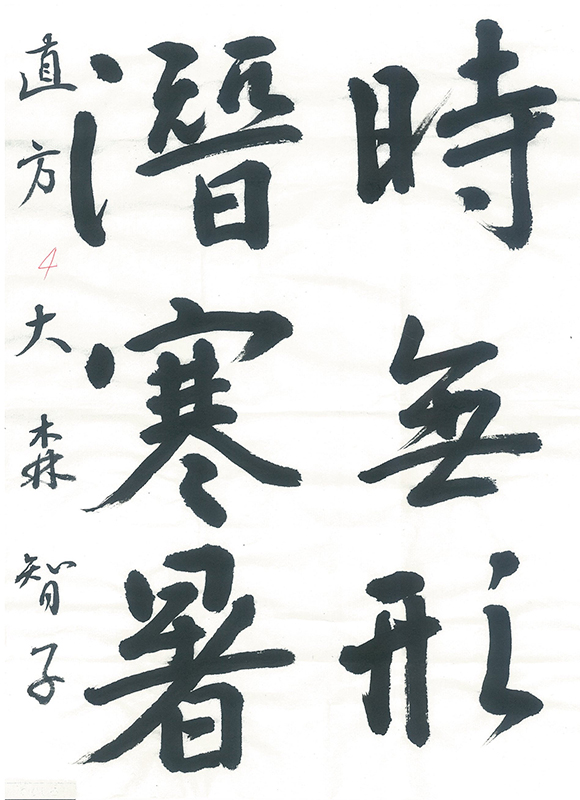 時無形
潛寒暑
直方 4 大森智子